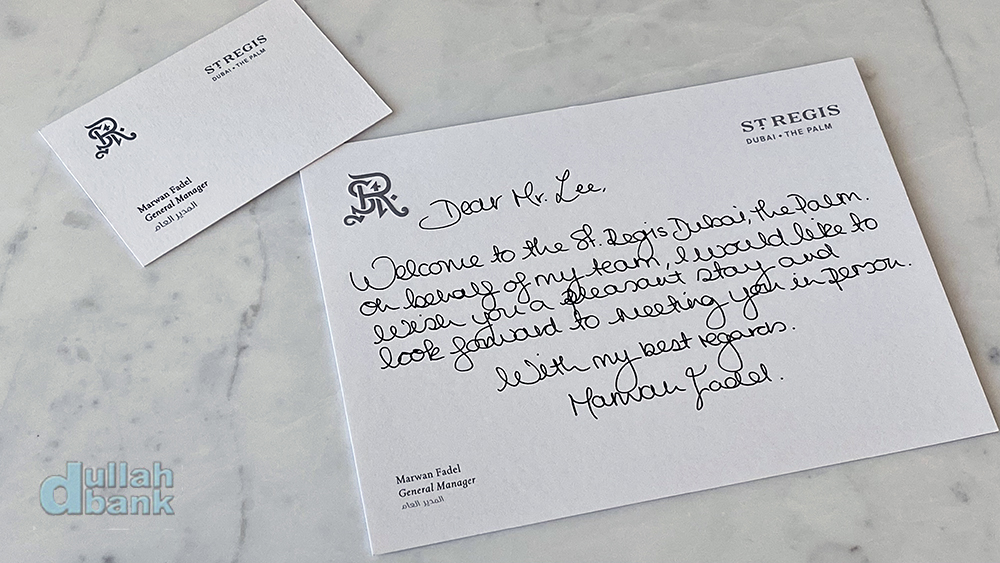 ST REGIS
DUBAI • THE PALM
Marwan Fadel
General Manager
المدير العام
ST REGIS
DUBAI • THE PALM
Dear Mr. Lee,
Welcome to the St. Regis Dubai, the Palm.
on behalf of my team, I would like to
wish you a pleasant stay and
look forward to meeting you in person.
With my best regards.
Marwan Fadel.
Marwan Fadel
General Manager
المدير العام
dullah
bank